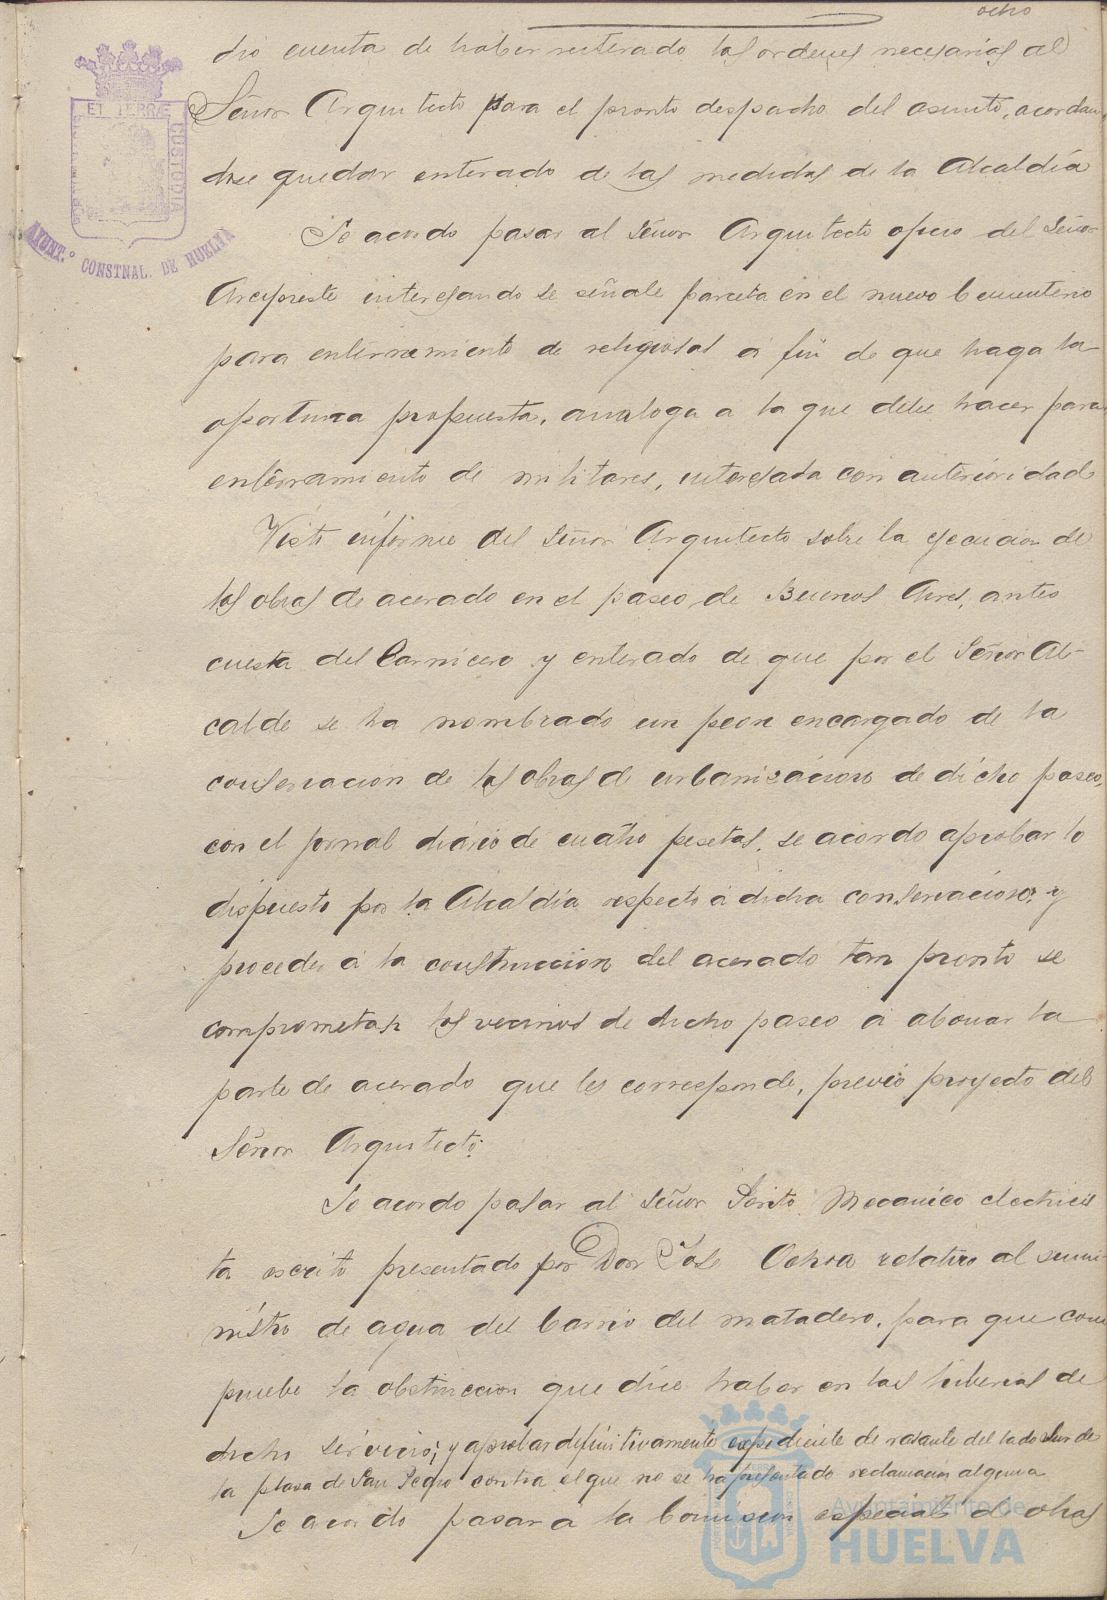 ocho
dió cuenta de haber reiterado las ordenes necesarias al
Señor Arquitecto para el pronto despacho del asunto, acordan
dose quedar enterado de las medidas de la Alcaldía
Se acordo pasar al Señor Arquitecto oficio del Señor
Arcipreste interesando se señale parcela en el nuevo Cementerio
para enterramiento de religiosas á fin de que haga la
oportuna propuesta, analoga a la que debe hacer para
enterramiento de militares, interesada con anterioridad
Visto informe del Señor Arquitecto sobre la ejecucion de
las obras de acerado en el paseo de Buenos Aires, antes
cuesta del Carnicero y enterado de que por el Señor Al-
calde se ha nombrado un peon encargado de la
conservacion de las obras de urbanizacion de dicho paseo,
con el jornal diario de cuatro pesetas, se acordo aprobar lo
dispuesto por la Alcaldía respecto á dicha conservacion, y
proceder á la construccion del acerado tan pronto se
comprometan los vecinos de dicho paseo á abonar la
parte de acerado que les corresponde, previo proyecto del
Señor Arquitecto.
Se acordo pasar al Señor Perito Mecanico electricis
ta escrito presentado por Don José Ochoa relativo al sumi
nistro de agua del barrio del matadero, para que com
pruebe la obstruccion que dice haber en las tuberias de
dicho servicio; y aprobar definitivamente expediente de rasante del lado Sur de
la plaza de San Pedro contra el que no se ha presentado reclamacion alguna
Se acordo pasar a la Comision especial de obras
ET TERRÆ
CUSTODIA
AYUNT.º CONSTNAL. DE HUELVA
Ayuntamiento de
HUELVA